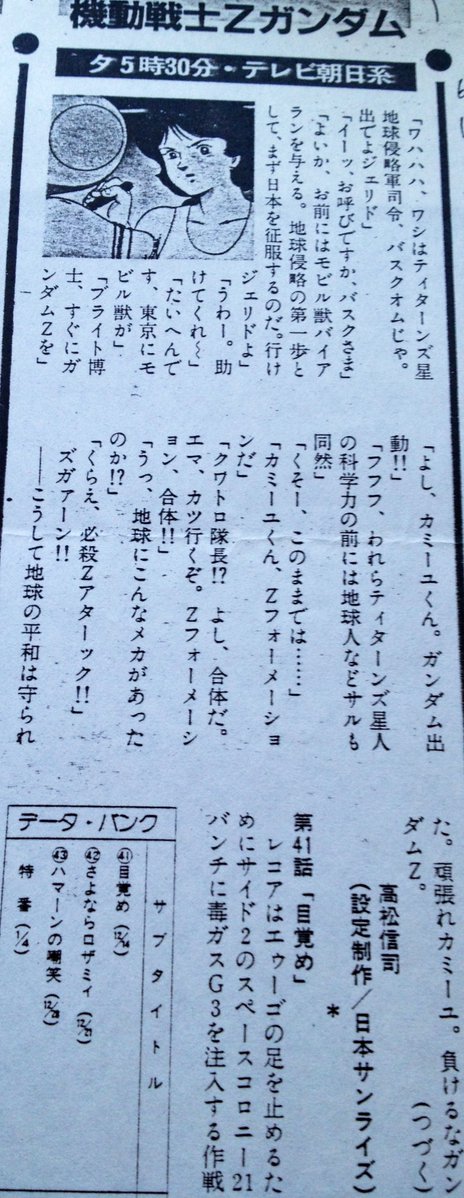 機動戦士Zガンダム
夕5時30分・テレビ朝日系
「ワハハハ、ワシはティターンズ星
地球侵略軍司令、バスクオムじゃ。
出でよジェリド」
「イーッ、お呼びですか、バスクさま」
「よいか、お前にはモビル獣バイア
ランを与える。地球侵略の第一歩と
して、まず日本を征服するのだ。行け
ジェリドよ」
「うわー。助
けてくれ〜」
「たいへんで
す、東京にモ
ビル獣が」
「ブライト博
士、すぐにガ
ンダムZを」
「よし、カミーユくん。ガンダム出
動!!」
「フフフ、われらティターンズ星人
の科学力の前には地球人などサルも
同然」
「くそー、このままでは……」
「カミーユくん、Zフォーメーショ
ンだ」
「クワトロ隊長!? よし、合体だ。
エマ、カツ行くぞ。Zフォーメーシ
ョン、合体!!」
「うっ、地球にこんなメカがあった
のか!?」
「くらえ、必殺Zアターック!!」
ズガァーン!!
──こうして地球の平和は守られ
た。頑張れカミーユ。負けるなガン
ダムZ。
(つづく)
高松信司
(設定制作/日本サンライズ)
*
第41話「目覚め」
レコアはエゥーゴの足を止めるた
めにサイド2のスペースコロニー21
バンチに毒ガスG3を注入する作戦
データ・バンク
サブタイトル
㊶目覚め(12/14)
㊷さよならロザミィ(12/21)
㊸ハマーンの嘲笑(12/28)
特番(1/4)